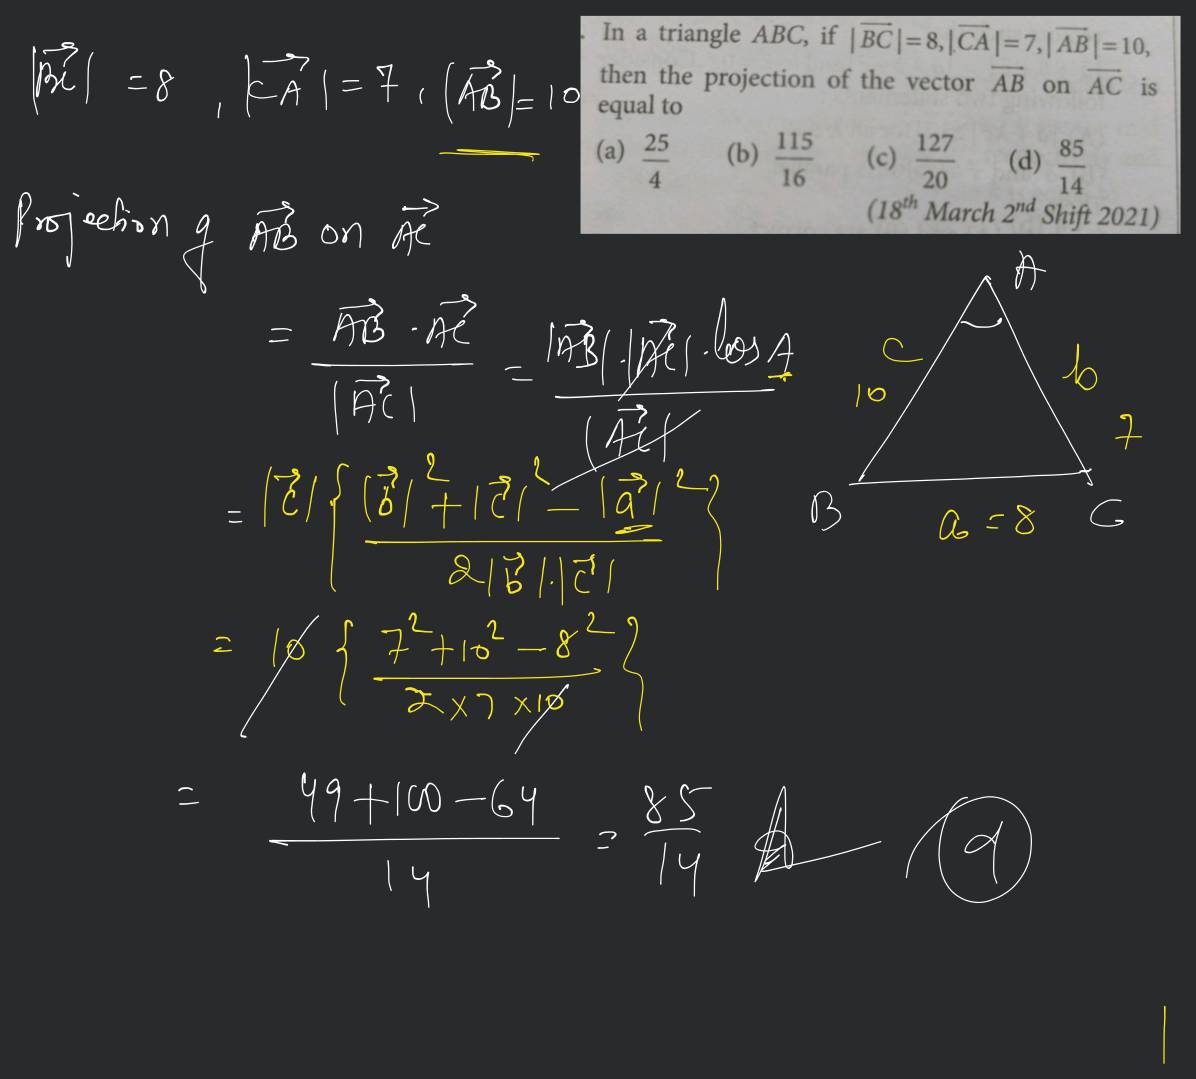 |BC| = 8, |CA| = 7, |AB| = 10
In a triangle ABC, if |BC|=8,|CA|=7,|AB|=10,
then the projection of the vector AB on AC is
equal to
(a) 25/4 (b) 115/16 (c) 127/20 (d) 85/14
(18th March 2nd Shift 2021)
Projection of AB on AC
= AB · AC / |AC| = |AB|·|AC|·cos A / |AC|
= |c| { |b|² + |c|² − |a|² / 2|b|·|c| }
= 10 { 7² + 10² − 8² / 2 × 7 × 10 }
= 49 + 100 − 64 / 14 = 85/14
A
c
10
b
7
B
a = 8
C